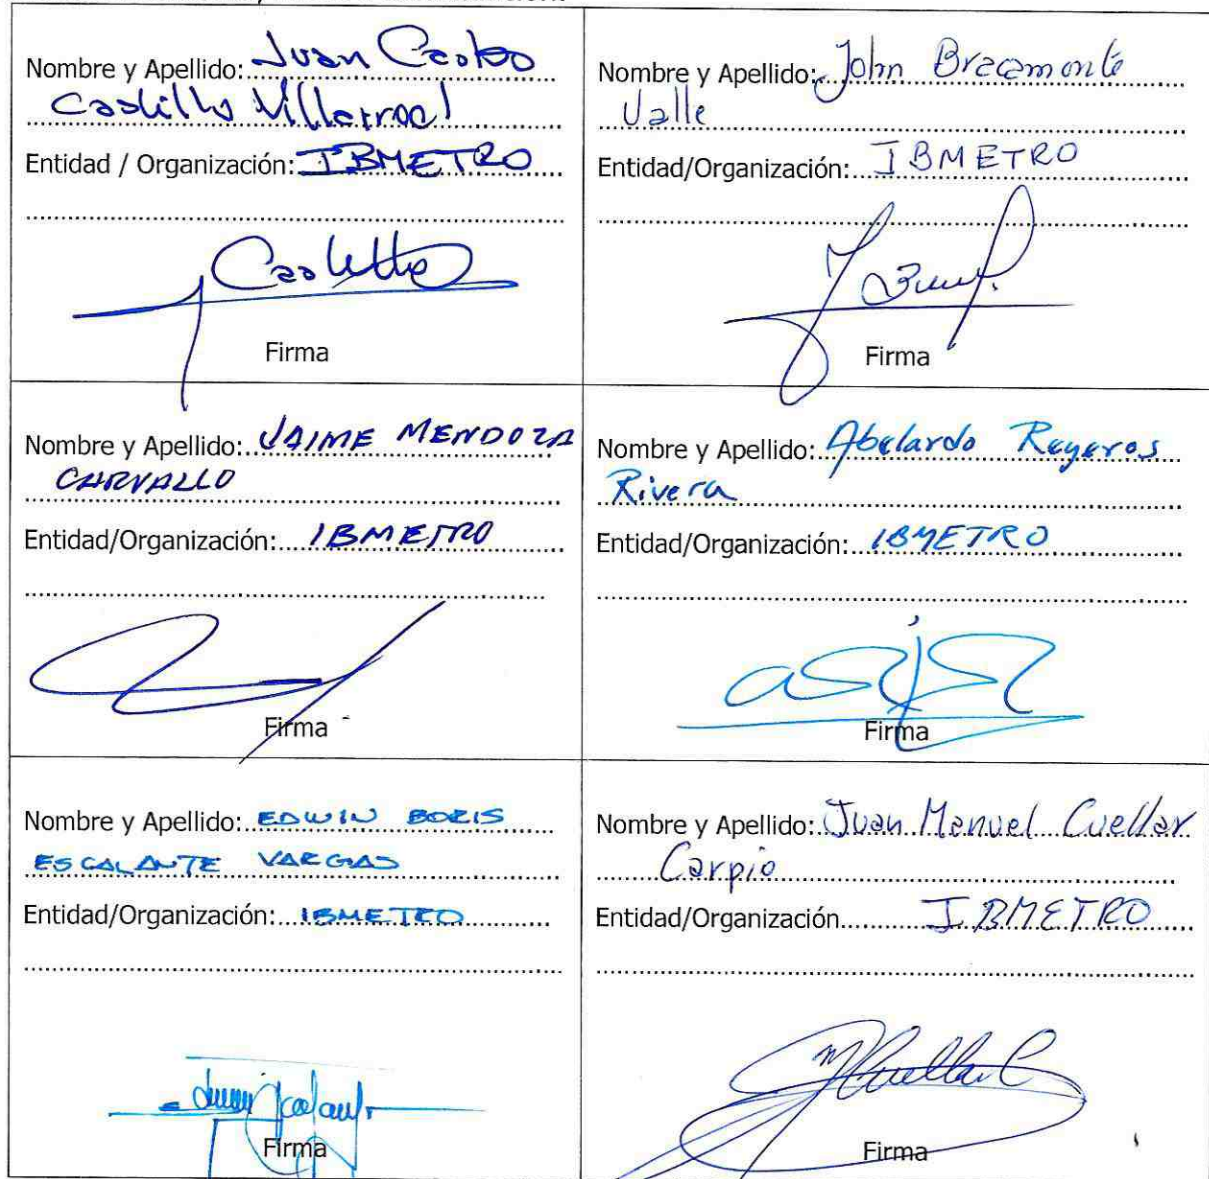 Nombre y Apellido: Juan Carlos
Castillo Villarroel
Entidad / Organización: IBMETRO
Firma
Nombre y Apellido: John Bracamonte
Valle
Entidad/Organización: IBMETRO
Firma
Nombre y Apellido: JAIME MENDOZA
CARVALLO
Entidad/Organización: IBMETRO
Firma
Nombre y Apellido: Abelardo Reyeros
Rivera
Entidad/Organización: IBMETRO
Firma
Nombre y Apellido: EDWIN BORIS
ESCALANTE VARGAS
Entidad/Organización: IBMETRO
Firma
Nombre y Apellido: Juan Manuel Cuellar
Carpio
Entidad/Organización IBMETRO
Firma